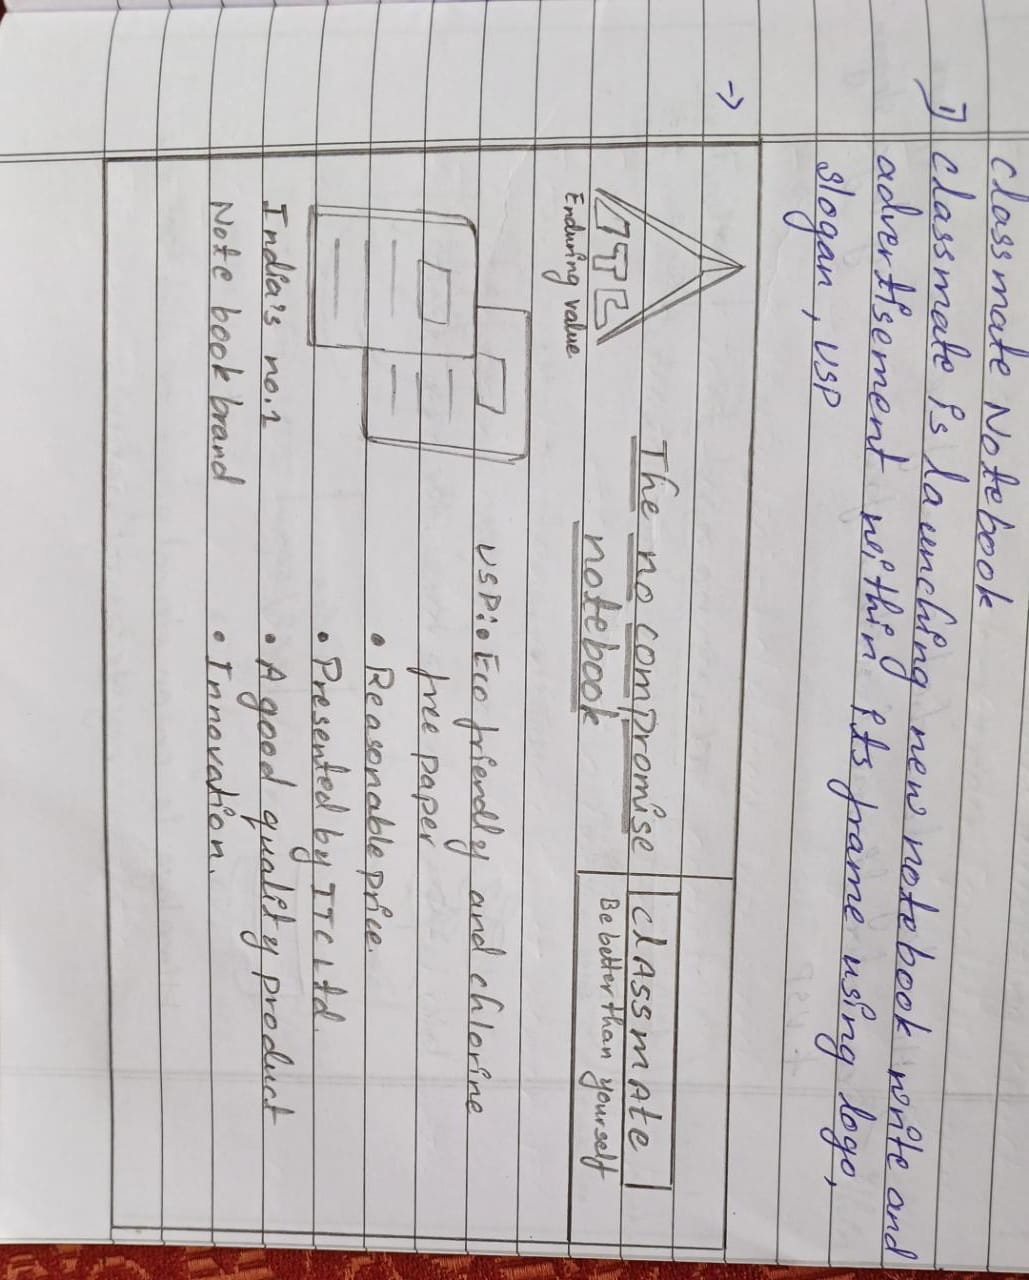 classmate Notebook
1) classmate is launching new notebook write and
advertisement within its frame using logo,
slogan, USP
→
ITC
Enduring value
The no compromise
notebook
classmate
Be better than yourself
USP: • Eco friendly and chlorine
free paper
• Reasonable price.
• Presented by ITC Ltd.
• A good quality product
• Innovation.
India's no.1
Note book brand